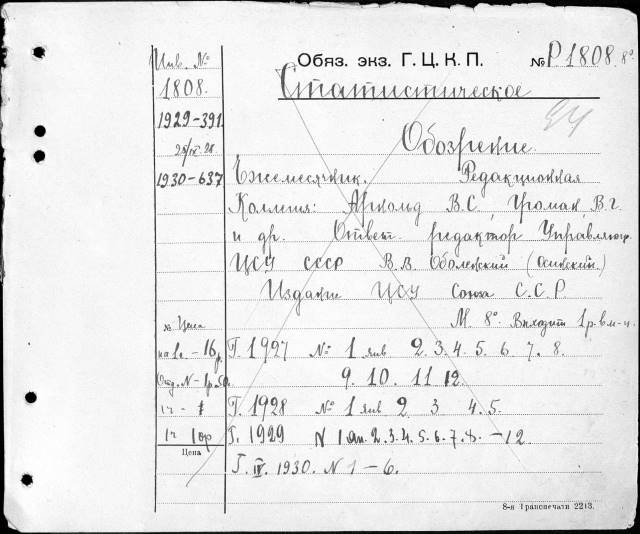 Инв. №
1808.
1929-391.
1930-637
№ Цена
на 1 г. - 16 р.
Отд. №-1р.50.
1 г - 1
1 г 10р
Цена
Обяз. экз. Г. Ц. К. П. № Р1808. 8°
Статистическое
Обозрение.
Ежемесячник. Редакционная
Коллегия: Арнольд В.С., Громан, В.Г.
и др. Ответ. редактор Управляющ.
ЦСУ СССР В.В. Оболенский (Осинский.)
Издание ЦСУ Союза С.С.Р.
М. 8° Выходит 1 р. в м-ц.
Г. 1927 № 1 янв 2. 3. 4. 5. 6 7. 8.
9. 10. 11 12.
Г. 1928 № 1 янв 2 3 4. 5.
Г. 1929 N 1 янв. 2. 3. 4. 5. 6. 7. 8. -12.
Г. IV. 1930. N 1 - 6.
8-я Транспечати 2213.